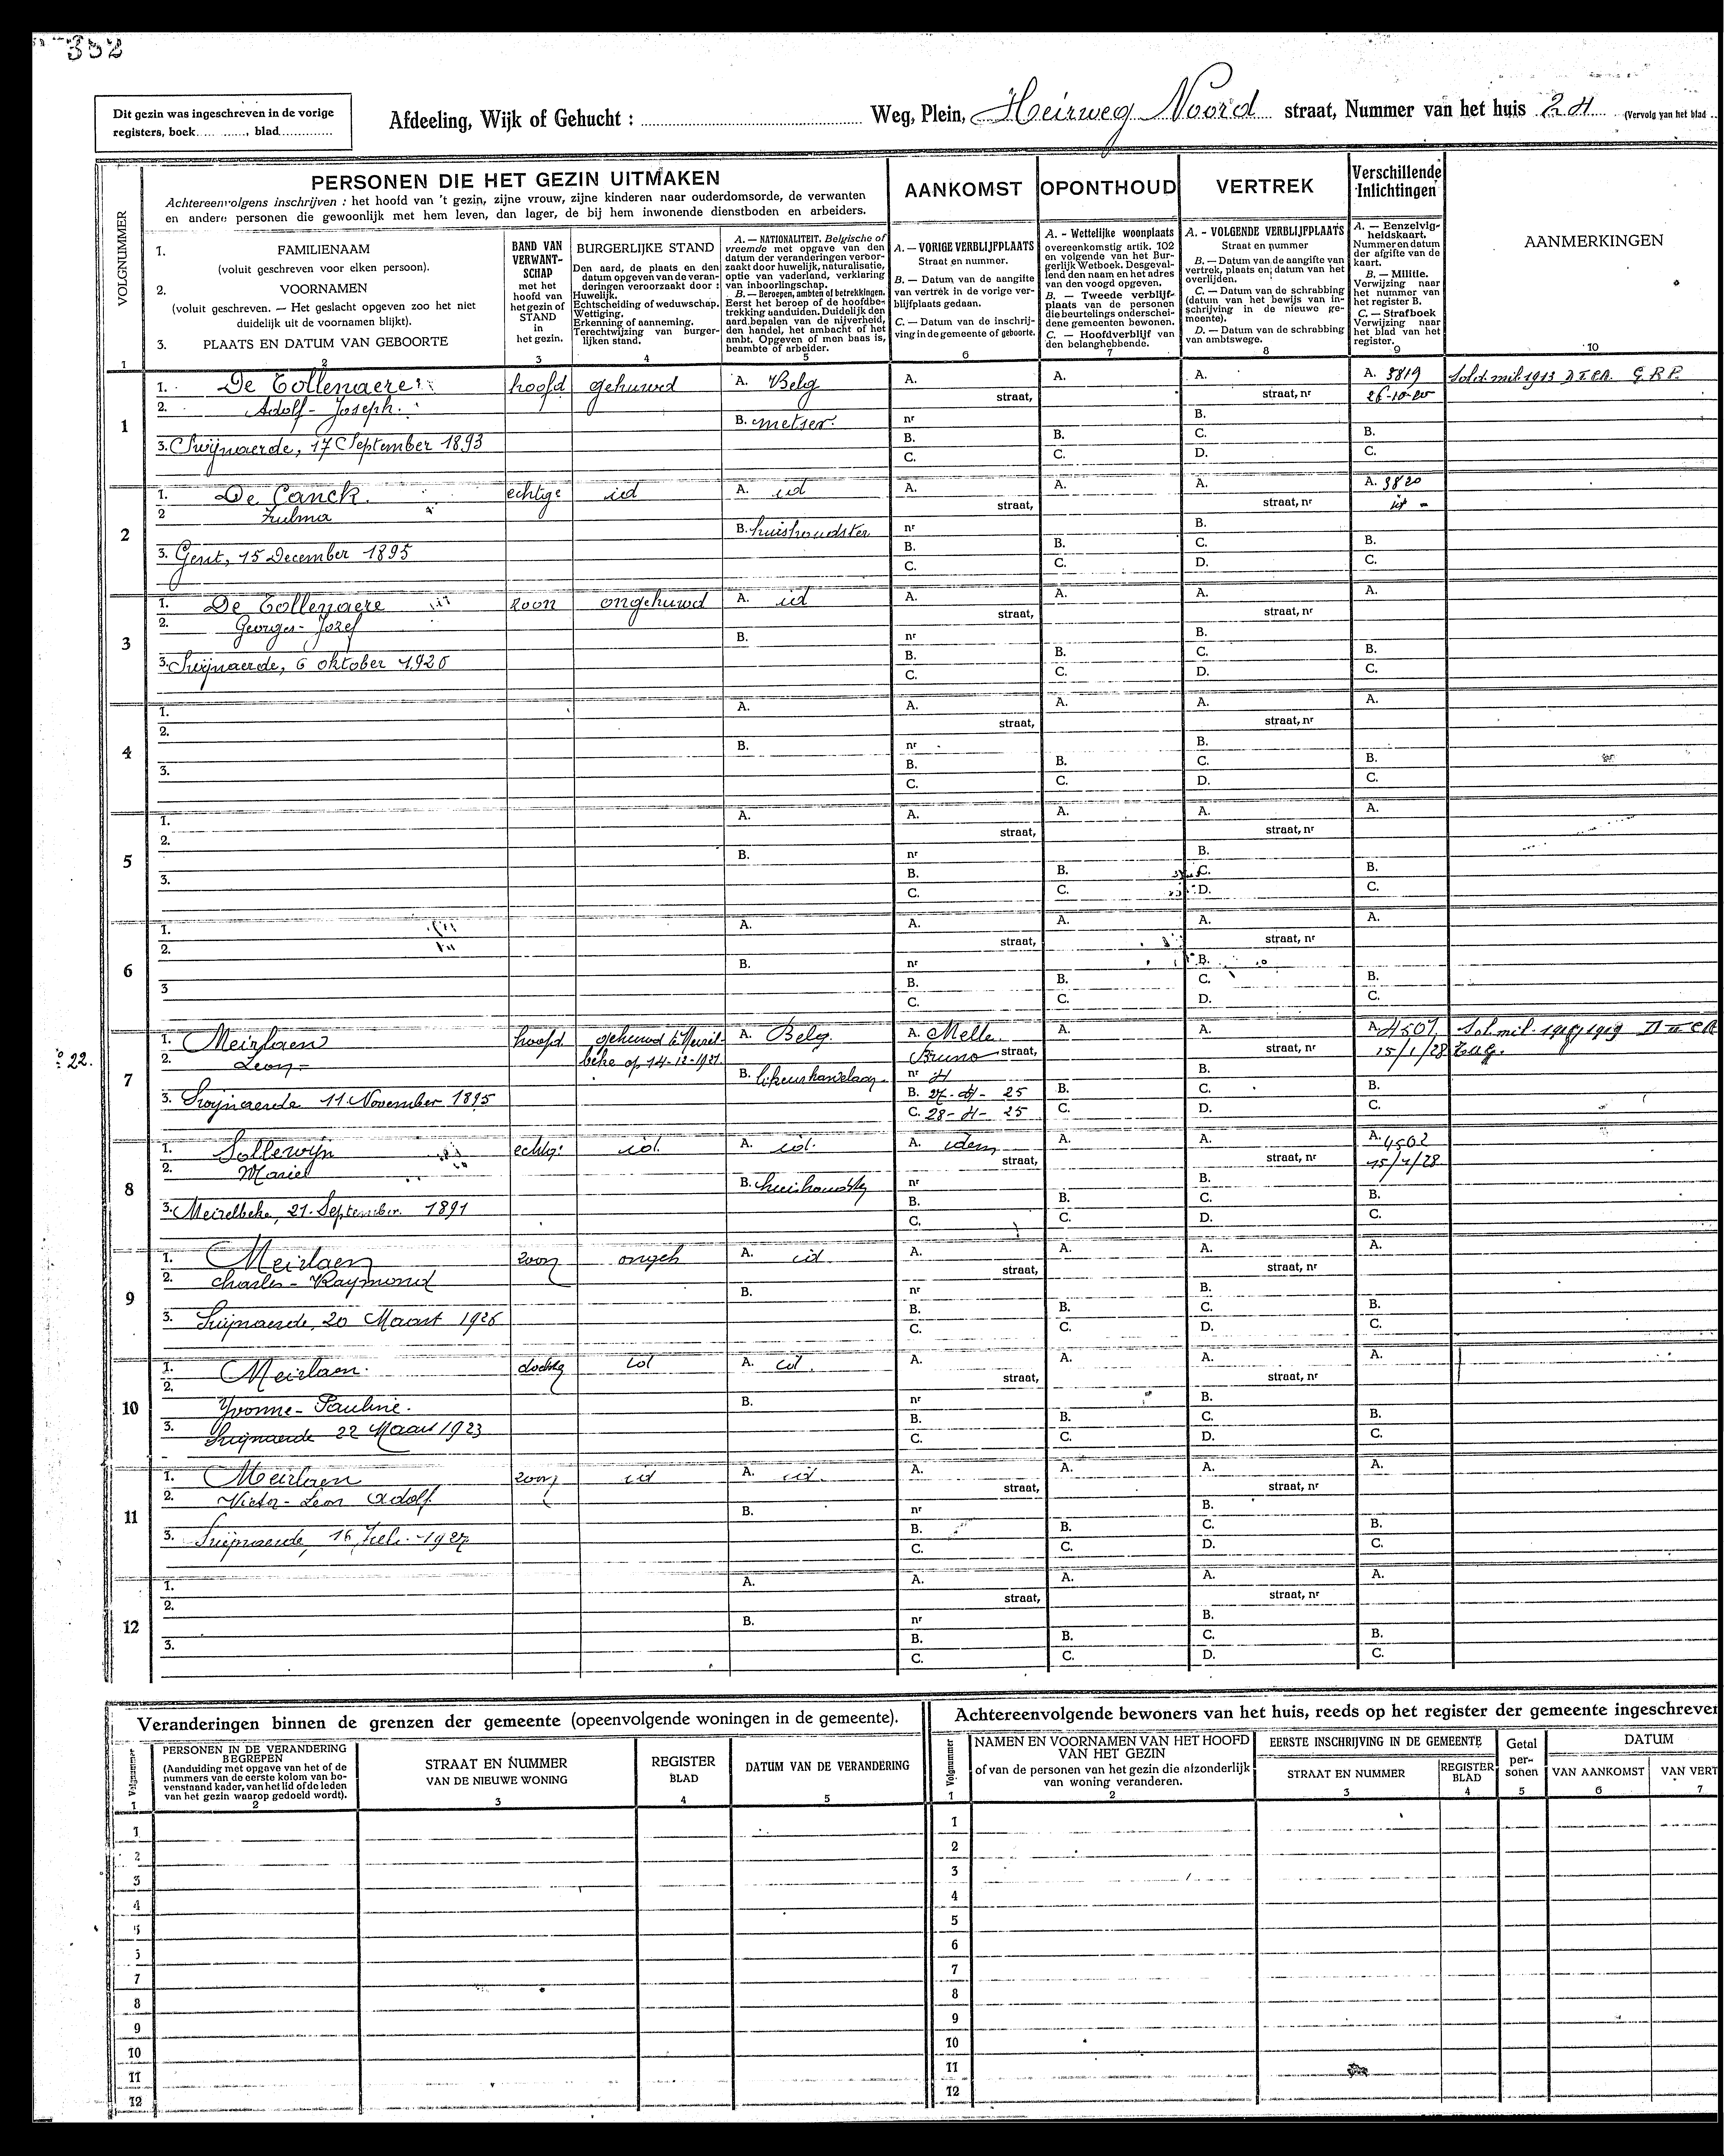 352
Dit gezin was ingeschreven in de vorige
registers, boek..... ......., blad.............
Afdeeling, Wijk of Gehucht : Weg, Plein, Heirweg Noord straat, Nummer van het huis 24 (Vervolg van het blad
PERSONEN DIE HET GEZIN UITMAKEN
Achtereenvolgens inschrijven : het hoofd van 't gezin, zijne vrouw, zijne kinderen naar ouderdomsorde, de verwanten
en andere personen die gewoonlijk met hem leven, dan lager, de bij hem inwonende dienstboden en arbeiders.
AANKOMST
OPONTHOUD
VERTREK
Verschillende
Inlichtingen
AANMERKINGEN
VOLGNUMMER
1. FAMILIENAAM
(voluit geschreven voor elken persoon).
2. VOORNAMEN
(voluit geschreven. — Het geslacht opgeven zoo het niet
duidelijk uit de voornamen blijkt).
3. PLAATS EN DATUM VAN GEBOORTE
BAND VAN
VERWANT-
SCHAP
met het
hoofd van
het gezin of
STAND
in
het gezin.
BURGERLIJKE STAND
Den aard, de plaats en den
datum opgeven van de veran-
deringen veroorzaakt door :
Huwelijk.
Echtscheiding of weduwschap.
Wettiging.
Erkenning of aanneming.
Terechtwijzing van burger-
lijken stand.
A. — NATIONALITEIT. Belgische of
vreemde met opgave van den
datum der veranderingen veroor-
zaakt door huwelijk, naturalisatie,
optie van vaderland, verklaring
van inboorlingschap.
B. — Beroepen, ambten of betrekkingen.
Eerst het beroep of de hoofdbe-
trekking aanduiden. Duidelijk den
aard bepalen van de nijverheid,
den handel, het ambacht of het
ambt. Opgeven of men baas is,
beambte of arbeider.
A. — VORIGE VERBLIJFPLAATS
Straat en nummer.
B. — Datum van de aangifte
van vertrek in de vorige ver-
blijfplaats gedaan.
C. — Datum van de inschrij-
ving in de gemeente of geboorte.
A. - Wettelijke woonplaats
overeenkomstig artik. 102
en volgende van het Bur-
gerlijk Wetboek. Desgeval-
lend den naam en het adres
van den voogd opgeven.
B. — Tweede verblijf-
plaats van de personen
die beurtelings onderschei-
dene gemeenten bewonen.
C. — Hoofdverblijf van
den belanghebbende.
A. - VOLGENDE VERBLIJFPLAATS
Straat en nummer
B. — Datum van de aangifte van
vertrek, plaats en datum van het
overlijden.
C. — Datum van de schrabbing
(datum van het bewijs van in-
schrijving in de nieuwe ge-
meente).
D. — Datum van de schrabbing
van ambtswege.
A. — Eenzelvig-
heidskaart.
Nummer en datum
der afgifte van de
kaart.
B. — Militie.
Verwijzing naar
het nummer van
het register B.
C. — Strafboek
Verwijzing naar
het blad van het
register.
1 2 3 4 5 6 7 8 9 10
1 1. De Tollenaere hoofd gehuwd A. Belg A. straat, A. A. straat, nr A. 3819 Sold. mil. 1913
2. Adolf - Joseph. 26-10-20
B. metser. nr B.
3. Swijnaerde, 17 September 1893 B. B. C. B.
C. C. D. C.
2 1. De Canck. echtge id A. id A. straat, A. A. straat, nr A. 3820
2 Zulma id -
B. huishoudster nr B.
3. Gent, 15 December 1895 B. B. C. B.
C. C. D. C.
3 1. De Tollenaere zoon ongehuwd A. id A. straat, A. A. straat, nr A.
2. Georges - Jozef
B. nr B.
3. Swijnaerde, 6 oktober 1920 B. B. C. B.
C. C. D. C.
4 1. A. A. straat, A. A. straat, nr A.
2. B. nr B.
3. B. B. C. B.
C. C. D. C.
5 1. A. A. straat, A. A. straat, nr A.
2. B. nr B.
3. B. B. C. B.
C. C. D. C.
6 1. A. A. straat, A. A. straat, nr A.
2. B. nr B.
3 B. B. C. B.
C. C. D. C.
22.
7 1. Meirlaen hoofd gehuwd te Meirel- A. Belg. A. Melle A. A. straat, nr A. 4501 Sol. mil.
2. Leon - beke op 14-12-1921 Bruno straat, 15/1/28
B. nr 4 B.
3. Swijnaerde 11 November 1895 B. 27-4-25 B. C. B.
C. 28-4-25 C. D. C.
8 1. Sollewijn echtg: id. A. id. A. idem straat, A. A. straat, nr A. 4502
2. Marie 15/1/28
B. nr B.
3. Meirelbeke, 21 September 1891 B. B. C. B.
C. C. D. C.
9 1. Meirlaen zoon ongeh A. id A. straat, A. A. straat, nr A.
2. Charles - Raymond
B. nr B.
3. Swijnaerde, 20 Maart 1926 B. B. C. B.
C. C. D. C.
10 1. Meirlaen. dochter id A. id. A. straat, A. A. straat, nr A.
2. Yvonne - Pauline. B. nr B.
3. Swijnaerde 22 Maart 1923 B. B. C. B.
C. C. D. C.
11 1. Meirlaen zoon id A. id. A. straat, A. A. straat, nr A.
2. Victor - Leon Adolf.
B. nr B.
3. Swijnaerde, 16 Juli 1927 B. B. C. B.
C. C. D. C.
12 1. A. A. straat, A. A. straat, nr A.
2. B. nr B.
3. B. B. C. B.
C. C. D. C.
Veranderingen binnen de grenzen der gemeente (opeenvolgende woningen in de gemeente).
Volgnummer
PERSONEN IN DE VERANDERING
BEGREPEN
(Aanduiding met opgave van het of de
nummers van de eerste kolom van bo-
venstaand kader, van het lid of de leden
van het gezin waarop gedoeld wordt).
STRAAT EN NUMMER
VAN DE NIEUWE WONING
REGISTER
BLAD
DATUM VAN DE VERANDERING
1 2 3 4 5
1
2
3
4
5
5
7
8
9
10
11
12
Achtereenvolgende bewoners van het huis, reeds op het register der gemeente ingeschreven
Volgnummer
NAMEN EN VOORNAMEN VAN HET HOOFD
VAN HET GEZIN
of van de personen van het gezin die afzonderlijk
van woning veranderen.
EERSTE INSCHRIJVING IN DE GEMEENTE
STRAAT EN NUMMER
REGISTER
BLAD
Getal
per-
sonen
DATUM
VAN AANKOMST
VAN VERT
1 2 3 4 5 6 7
1
2
3
4
5
6
7
8
9
10
11
12